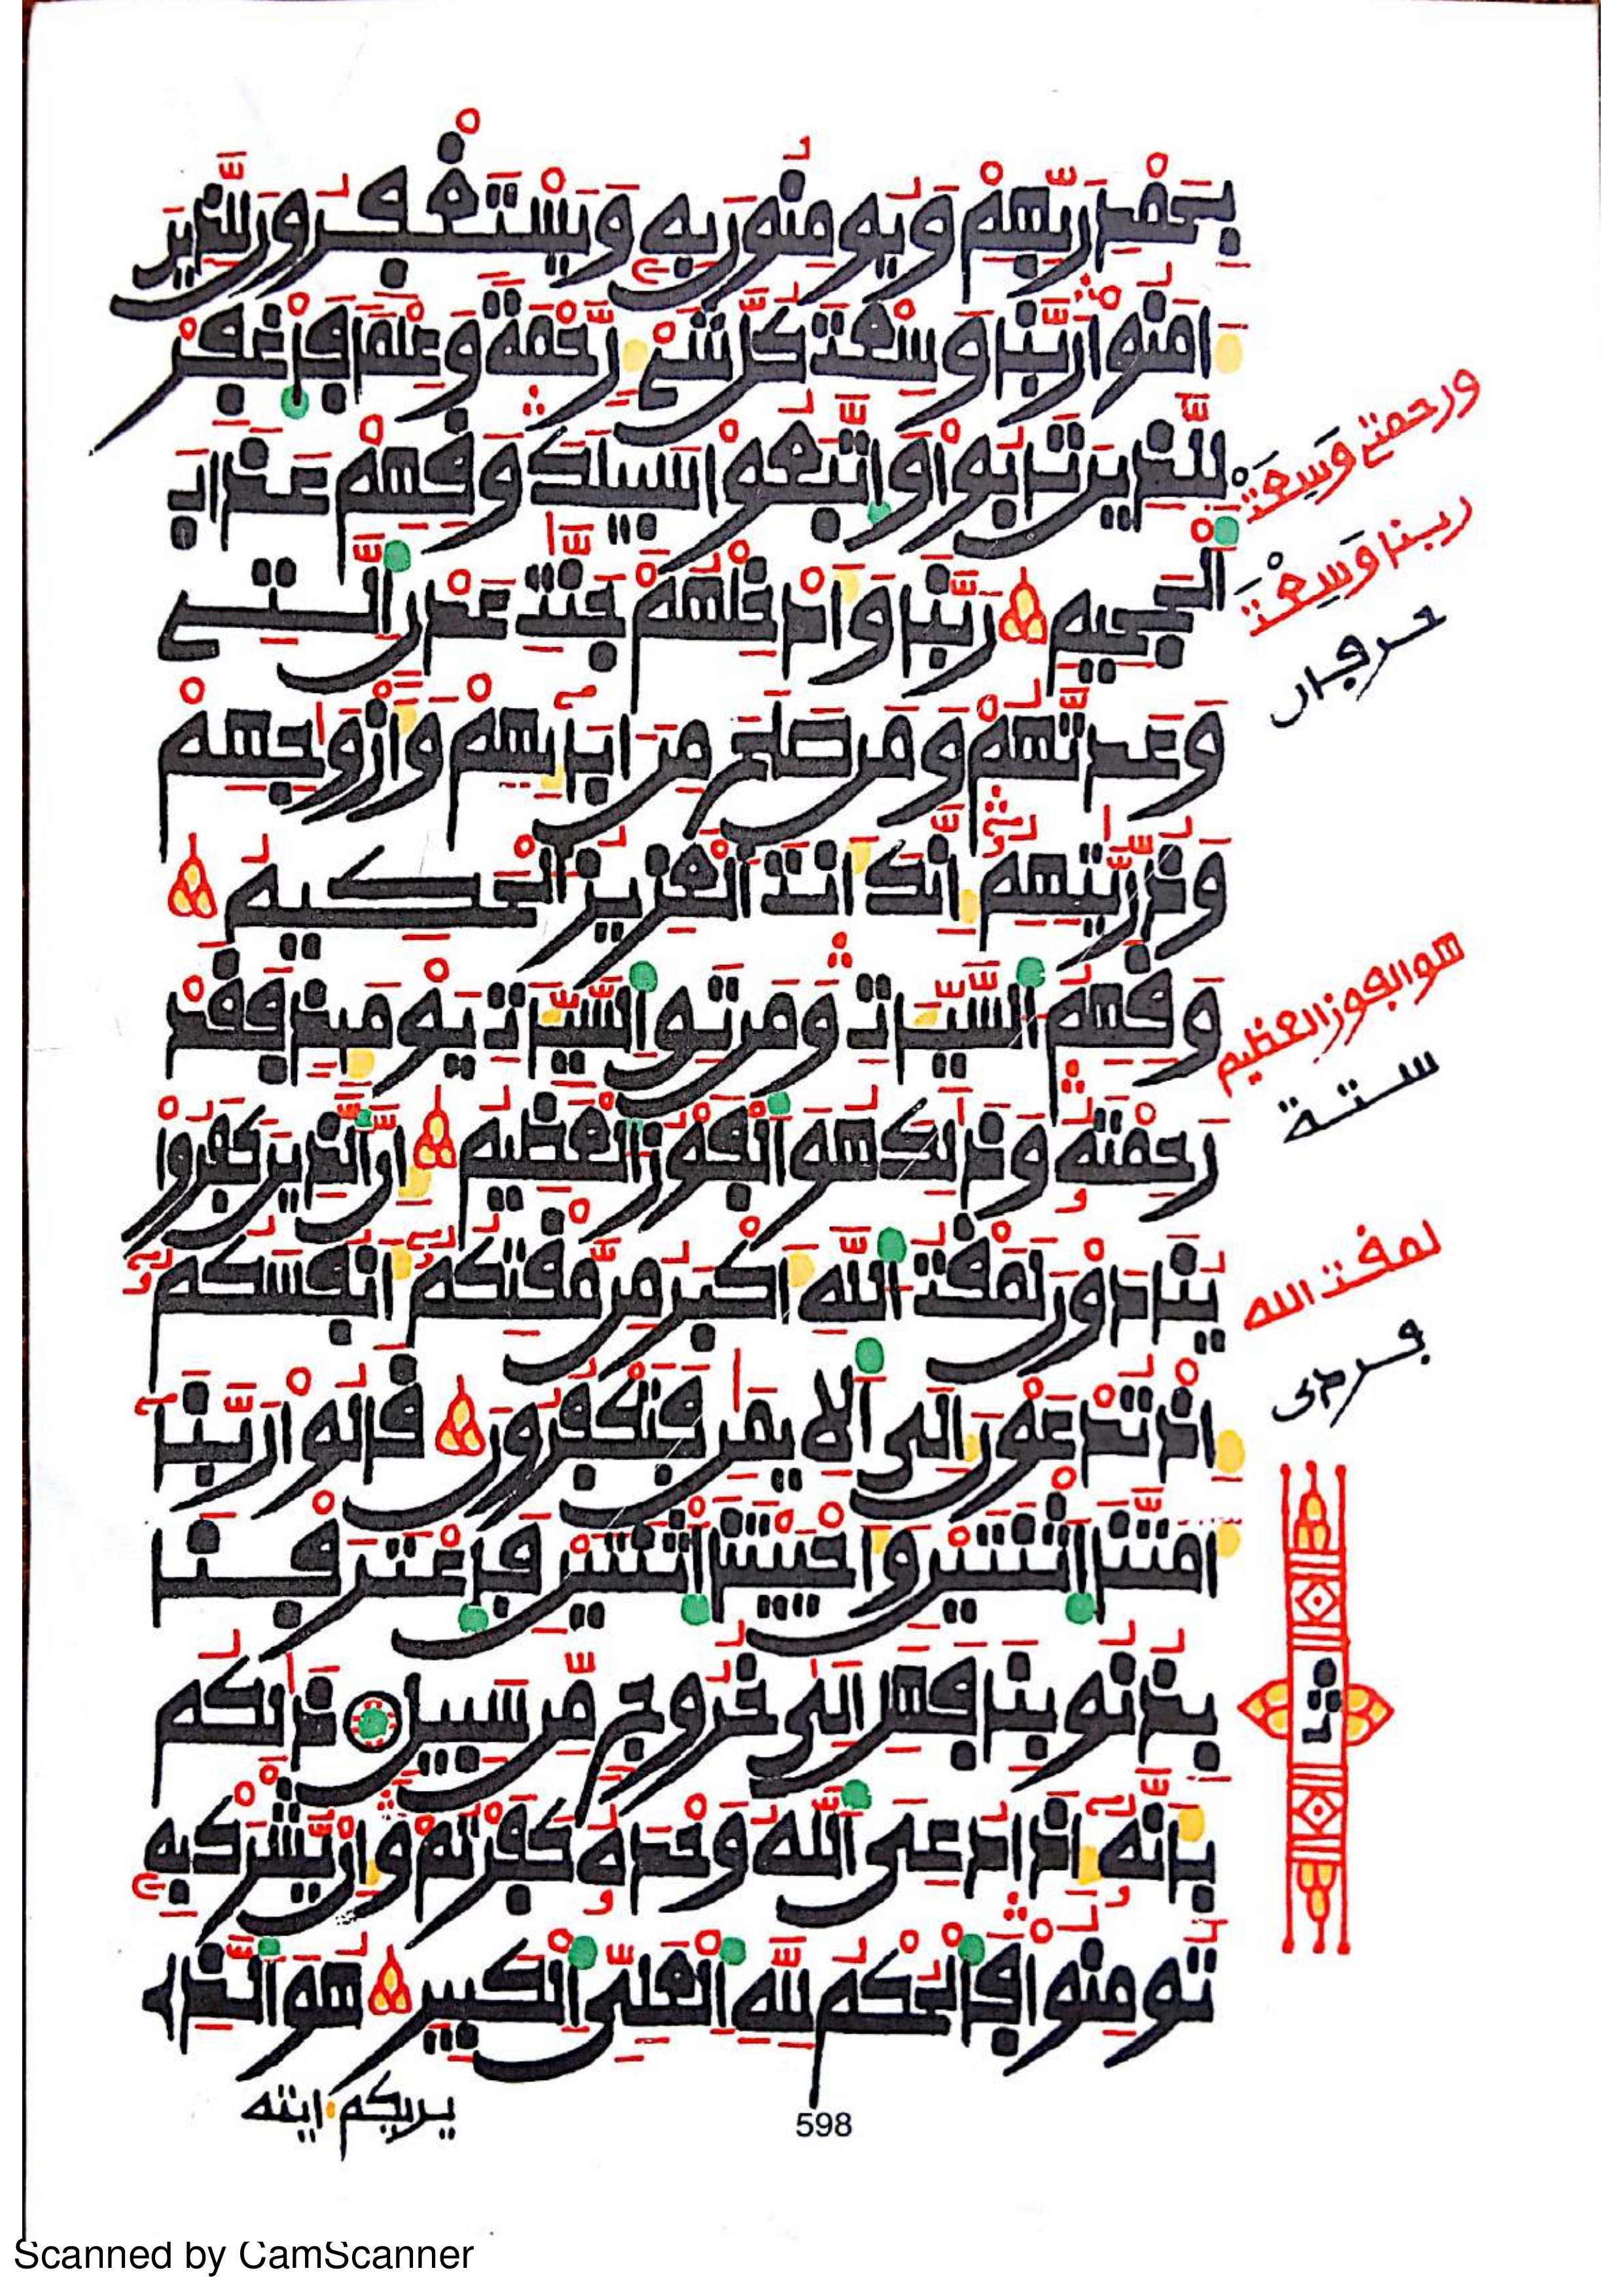 بِحَمْدِ رَبِّهِمْ وَيُومِنُونَ بِهِ وَيَسْتَغْفِرُونَ لِلَّذِينَ
ءَامَنُوا رَبَّنَا وَسِعْتَ كُلَّ شَيْءٍ رَّحْمَةً وَعِلْمًا فَاغْفِرْ
لِلَّذِينَ تَابُوا وَاتَّبَعُوا سَبِيلَكَ وَقِهِمْ عَذَابَ
الْجَحِيمِ رَبَّنَا وَأَدْخِلْهُمْ جَنَّٰتِ عَدْنٍ الَّتِي
وَعَدتَّهُمْ وَمَن صَلَحَ مِنَ ابَآئِهِمْ وَأَزْوَٰجِهِمْ
وَذُرِّيَّٰتِهِمُ إِنَّكَ أَنتَ الْعَزِيزُ الْحَكِيمُ
وَقِهِمُ السَّيِّـَٔاتِ وَمَن تَقِ السَّيِّـَٔاتِ يَوْمَئِذٍ فَقَدْ
رَحِمْتَهُ وَذَٰلِكَ هُوَ الْفَوْزُ الْعَظِيمُ إِنَّ الَّذِينَ كَفَرُوا
يُنَادَوْنَ لَمَقْتُ اللَّهِ أَكْبَرُ مِن مَّقْتِكُمُ أَنفُسَكُمُ
إِذْ تُدْعَوْنَ إِلَى الْإِيمَٰنِ فَتَكْفُرُونَ قَالُوا رَبَّنَا
أَمَتَّنَا اثْنَتَيْنِ وَأَحْيَيْتَنَا اثْنَتَيْنِ فَاعْتَرَفْنَا
بِذُنُوبِنَا فَهَلِ الَىٰ خُرُوجٍ مِّن سَبِيلٍ ذَٰلِكُم
بِأَنَّهُ إِذَا دُعِيَ اللَّهُ وَحْدَهُ كَفَرْتُمْ وَإِن يُشْرَكْ بِهِ
تُومِنُوا فَالْحُكْمُ لِلَّهِ الْعَلِيِّ الْكَبِيرِ هُوَ الَّذِي
يريكم ءايته
ورحمتي وَسِعَتْ
ربنا وَسِعْتَ
حرفان
هو الفوز العظيم
ستة
لمقت الله
فردى
ثمن
598
Scanned by CamScanner